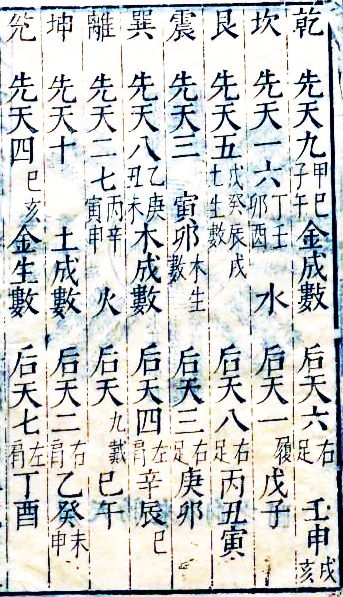 乾 先天九 甲己子午 金成數 后天六 右足 壬申 戌亥
坎 先天一六 丁壬卯酉 水 后天一 履 戊子
艮 先天五 戊癸辰戌土生數 后天八 右足 丙丑寅
震 先天三 寅卯 木生數 后天三 右足 庚卯
巽 先天八 乙庚丑未 木成數 后天四 左肩 辛辰巳
離 先天二七 丙辛寅申 火 后天九戴 巳午
坤 先天十 土成數 后天二 右肩 乙癸未申
兊 先天四 巳亥 金生數 后天七 左肩 丁酉